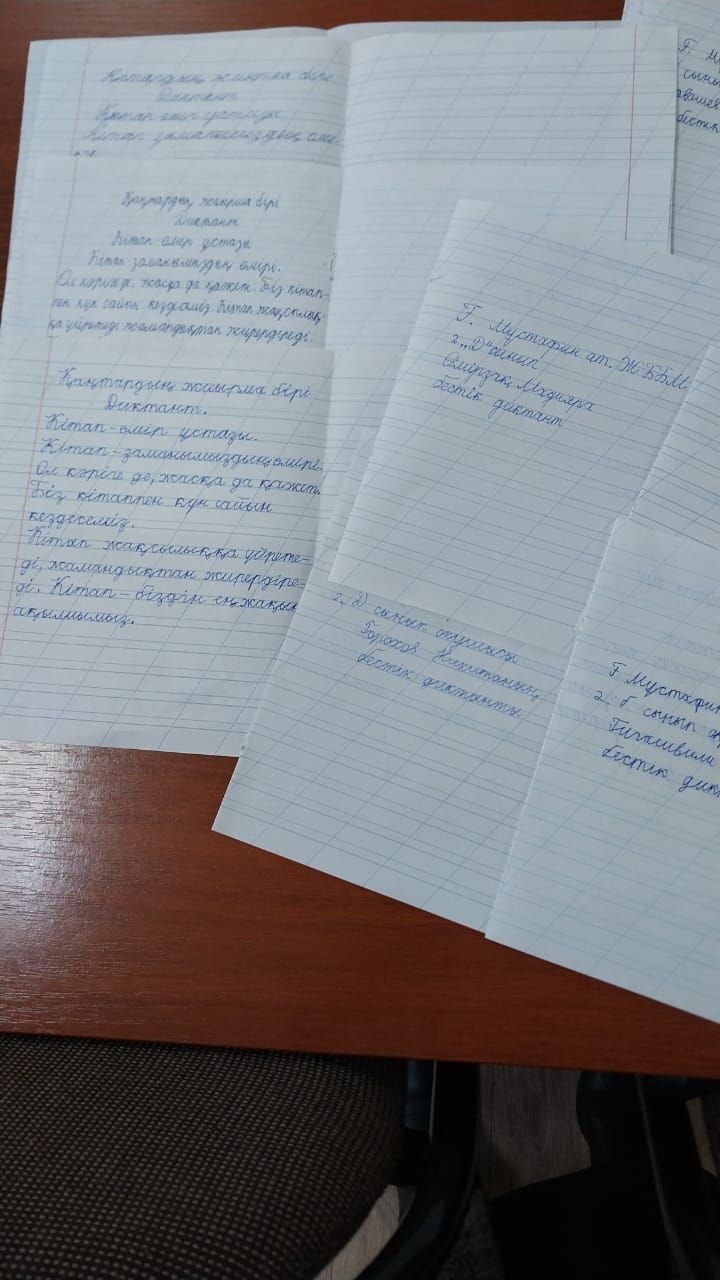 Қаңтардың жиырма бірі
Диктант
Кітап-өмір ұстазы
Кітап-заманымыздың өмі-
Қаңтардың жиырма бірі
Диктант
Кітап-өмір ұстазы
Кітап-заманымыздың өмірі.
Ол кәріге де, жасқа да қажет. Біз кітап-
пен күн сайын кездесеміз. Кітап жақсылық-
қа үйретеді жамандықтан жирендіреді.
Қаңтардың жиырма бірі
Диктант.
Кітап-өмір ұстазы.
Кітап-заманымыздың өмірі.
Ол кәріге де, жасқа да қажет.
Біз кітаппен күн сайын
кездесеміз.
Кітап жақсылыққа үйрете-
ді, жамандықтан жирердіре-
ді. Кітап-біздің ең жақын
ақылшымыз.
Ғ. Мустафин ат. ЖББМ
2 „Д" сынып
Өмірзақ Мадияра
бестік диктант
2, Д сынып оқушысы
Горохов Никитаның
бестік диктанты
Ғ Мустафин
2, б сынып
бестік
Ғ.
сыны
бестік